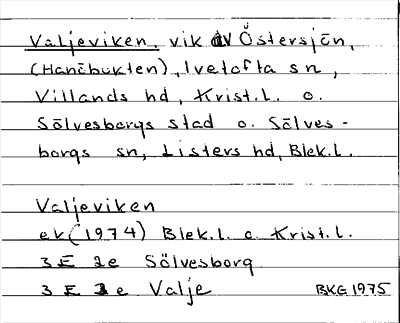 Valjeviken, vik av Östersjön,
(Hanöbukten), Ivetofta sn,
Villands hd, Krist.l. o.
Sölvesborgs stad o. Sölves-
borgs sn, Listers hd, Blek.l.
Valjeviken
ek (1974) Blek.l. o Krist.l.
3 E 2e Sölvesborg
3 E 2e Valje BKG 1975